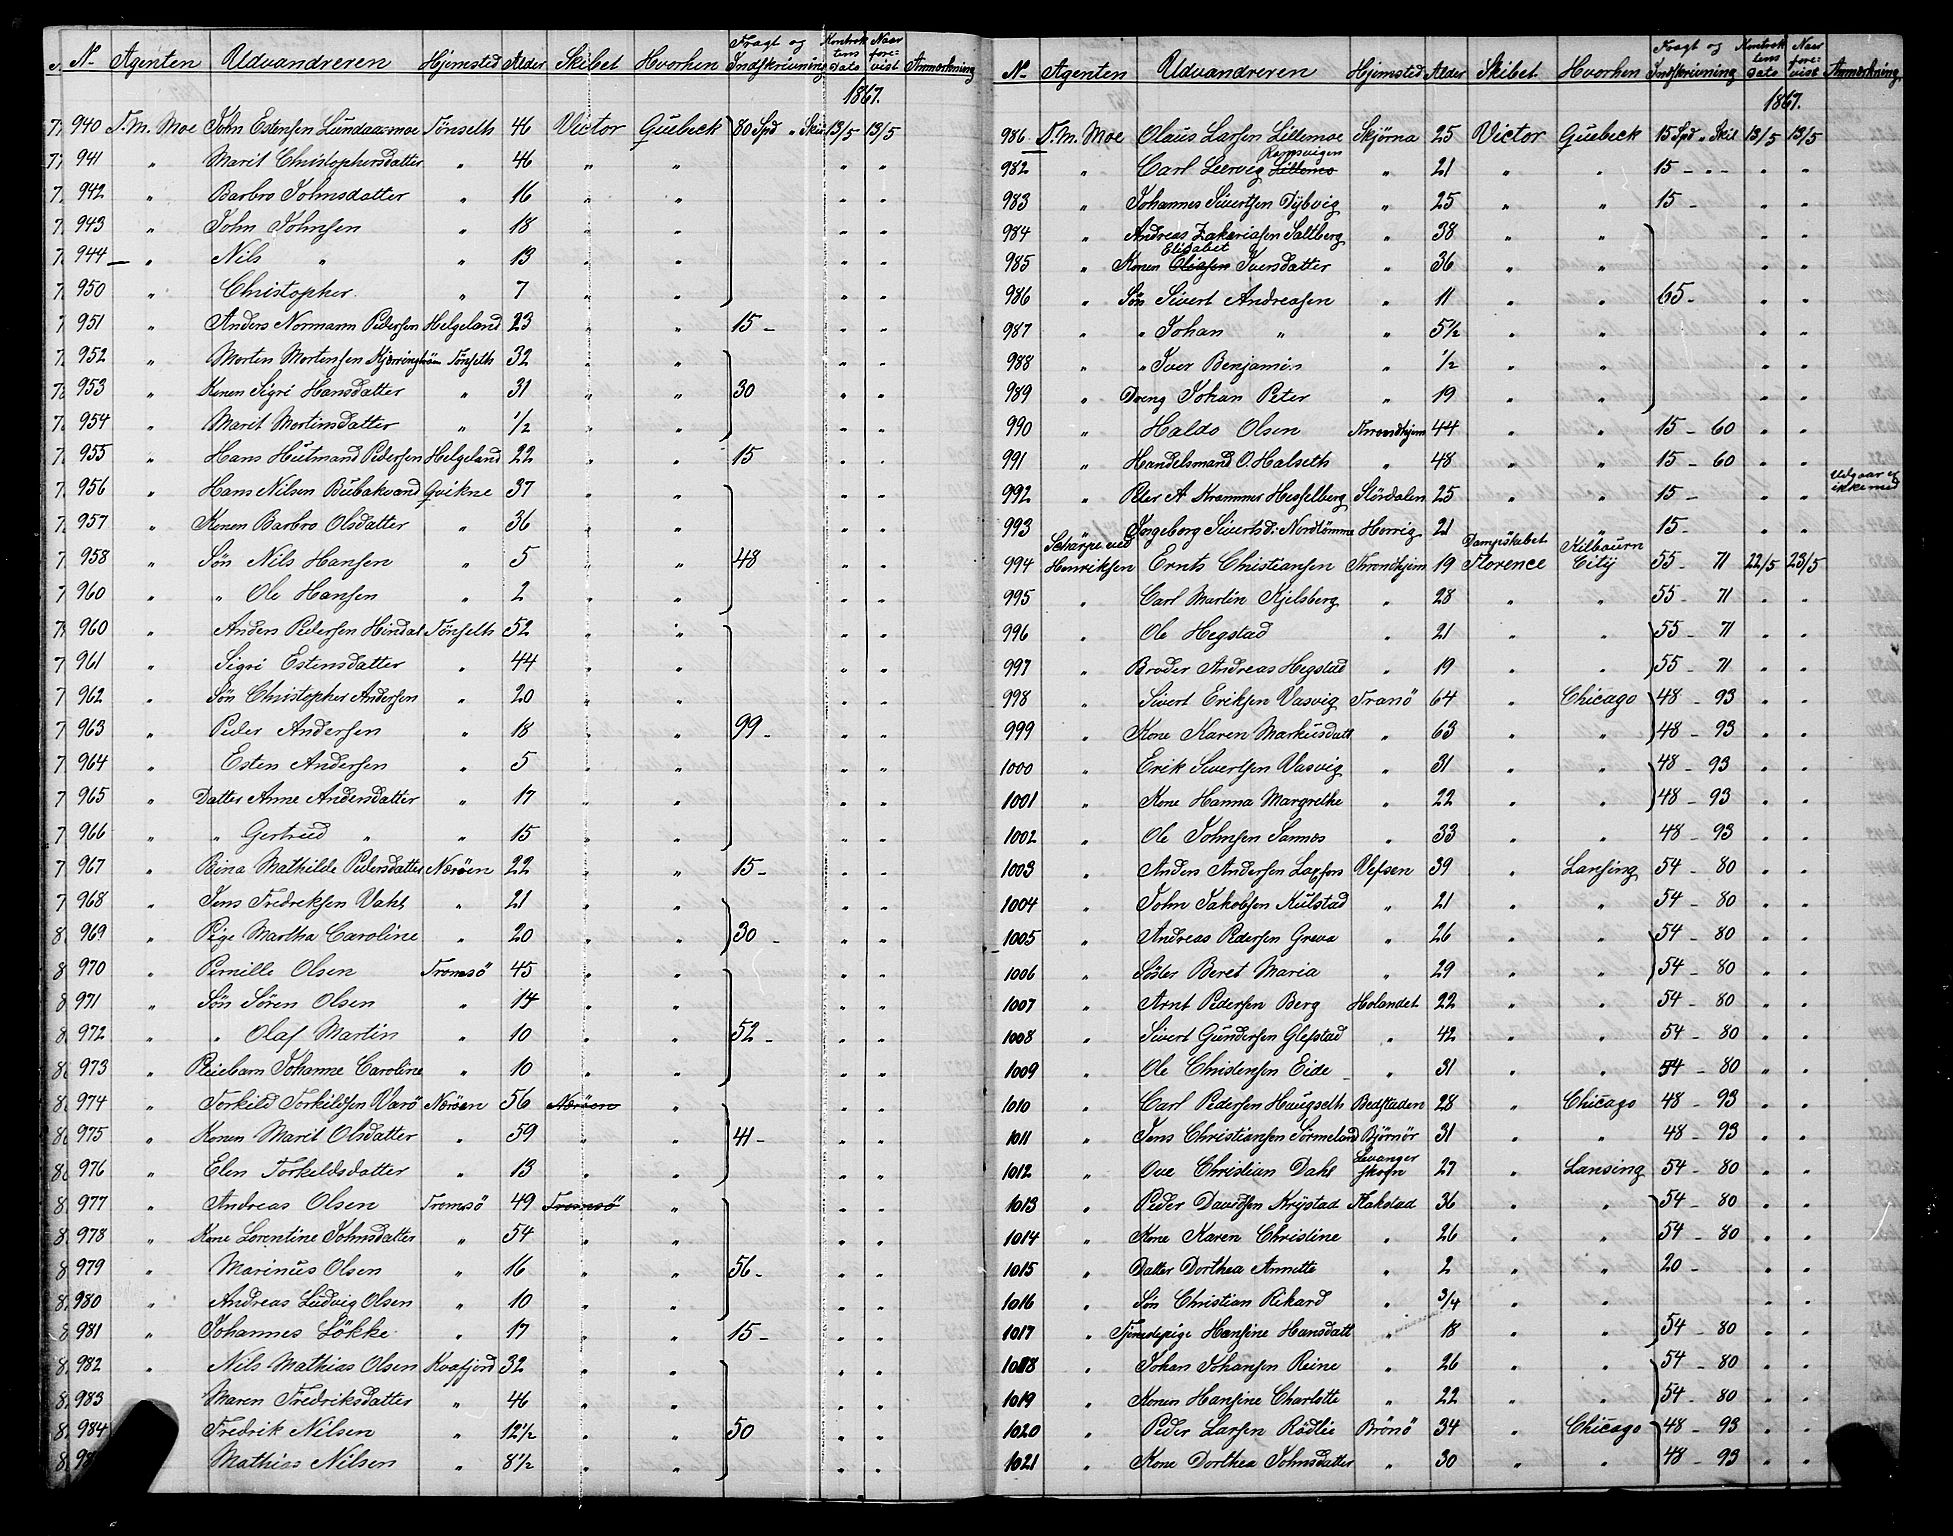 No Agenten Udvandreren Hjemsted Alder Skibet Hvorhen Fragt og Indskrivning Kontraktens Dato Naar forevist Anmærkning
1867.
940 T. M. Moe John Estensen Lundaasmoe Tönseth 46 Victor Quebeck 80 Spd " Skil 13/5 13/5
941 " Marit Christophersdatter " 46 " " " "
942 " Barbro Johnsdatter " 16 " " " "
943 " John Johnsen " 18 " " " "
944 " Nils " " 13 " " " "
950 " Christopher " 7 " " " "
951 " Anders Normann Pedersen Helgeland 23 " " 15 - " "
952 " Morten Mortensen Tönseth 32 " " " "
953 " Konen Sigri Hansdatter " 31 " " 30 " "
954 " Marit Mortinsdatter " 1/2 " " " "
955 " Hans Hutmand Pedersen Helgeland 22 " " 15 " "
956 " Hans Nilsen Bubakvand Qvikne 37 " " " "
957 " Konen Barbro Olsdatter " 36 " " " "
958 " Sön Nils Hansen " 5 " " 48 " "
960 " " Ole Hansen " 2 " " " "
960 " Anders Pedersen Hindal Tönseth 52 " " " "
961 " Sigri Estensdatter " 44 " " " "
962 " Sön Christopher Andersen " 20 " " " "
963 " Peder Andersen " 18 " " 99 - " "
964 " Esten Andersen " 5 " " " "
965 " Datter Anne Andersdatter " 17 " " " "
966 " " Gertrud " " 15 " " " "
967 " Bina Mathilde Pedersdatter Næröen 22 " " 15 - " "
968 " Jens Fredriksen Vahl " 21 " " " "
969 " Pige Martha Caroline " 20 " " 30 - " "
970 " Pernille Olsen Tromsö 45 " " " "
971 " Sön Sören Olsen " 14 " " " "
972 " " Olaf Martin " 10 " " 52 - " "
973 " Pleiebarn Johanne Caroline " 10 " " " "
974 " Torkild Torkildsen Værö Næröen 56 Næröen " " "
975 " Konen Marit Olsdatter " 59 " " 41 - " "
976 " Elen Torkeldsdatter " 13 " " " "
977 " Andreas Olsen Tromsö 49 Tromsö " " "
978 " Kone Lorentine Johnsdatter " 54 " " " "
979 " Marinus Olsen " 16 " " 56 - " "
980 " Andreas Ludvig Olsen " 10 " " " "
981 " Johannes Lökke " 17 " " 15 - " "
982 " Nils Mathias Olsen Kvafjord 32 " " " "
983 " Maren Fredriksdatter " 46 " " " "
984 " Fredrik Nilsen " 12 1/2 " " 50 " "
" Mathias Nilsen " 8 1/2 " " " "
No Agenten Udvandreren Hjemsted Alder Skibet Hvorhen Fragt og Indskrivning Kontraktens Dato Naar forevist Anmærkning
1867.
986 T. M. Moe Olaus Larsen Lillemoe Skjørna 25 Victor Quebeck 15 Spd " Skil 13/5 13/5
982 " Carl Leervig Lillemo Remsvigen " 21 " " 15 - " - " "
983 " Johannes Sivertsen Dybvig " 25 " " 15 - " "
984 " Andreas Zakariasen Saltberg " 38 " " " "
985 " Konen Oliasen Elisabet Iversdatter " 36 " " " "
986 " Sön Sivert Andreasen " 11 " " 65 - " "
987 " " Johan " " 5 1/2 " " " "
988 " " Iver Benjamin " 1/2 " " " "
989 " Dreng Johan Peter " 19 " " " "
990 " Haldo Olsen Throndhjem 44 " " 15 - 60 " "
991 " Handelsmand O. Halseth " 48 " " 15 - 60 " "
992 " Peter A Krammer Hesselberg Stördalen 25 " " 15 - " " Udgaar er ikke med
993 " Ingeborg Sivertsd: Nordtömme Horrig 21 " " 15 - " "
994 Scharpe ved Henriksen Ernts Christiansen Throndhjem 19 Dampskibet Florence Kilbourn City 55 - 71 22/5 23/5
995 " Carl Martin Kjelsberg " 28 " " 55 - 71 " "
996 " Ole Hegstad " 21 " " 55 - 71 " "
997 " Broder Andreas Hegstad " 19 " " 55 - 71 " "
998 " Sivert Eriksen Vasvig Tranö 64 " Chicago 48 - 93 " "
999 " Kone Karen Markusdatt " 63 " " 48 - 93 " "
1000 " Erik Sivertsen Vasvig " 31 " " 48 - 93 " "
1001 " Kone Hanna Margrethe " 22 " " 48 - 93 " "
1002 " Ole Johnsen Sannes " 33 " " 48 - 93 " "
1003 " Anders Andersen Laxfors Vefsen 39 " Lansing 54 - 80 " "
1004 " John Jakobsen Kulstad " 21 " " 54 - 80 " "
1005 " Andreas Pedersen Greva " 26 " " 54 - 80 " "
1006 " Söster Beret Maria " 29 " " 54 - 80 " "
1007 " Arnt Pedersen Berg Holandet 22 " " 54 - 80 " "
1008 " Sivert Gundersen Glefstad " 42 " " 54 - 80 " "
1009 " Ole Christensen Eide " 31 " " 54 - 80 " "
1010 " Carl Pedersen Haugseth Bedstaden 28 " Chicago 48 - 93 " "
1011 " Jens Christiansen Sörmeland Björnör 31 " " 48 - 93 " "
1012 " Ove Christian Dahl Levanger skogn 27 " Lansing 54 - 80 " "
1013 " Peder Davidsen Krystad Flakstad 36 " " 54 - 80 " "
1014 " Kone Karen Christine " 26 " " 54 - 80 " "
1015 " Datter Dorthea Annette " 2 " " 20 - " "
1016 " Sön Christian Rikard " 3/4 " " " "
1017 " Tjenestepige Hansine Hansdatt " 18 " " 54 - 80 " "
1018 " Johan Johansen Reine " 26 " " 54 - 80 " "
1019 " Konen Hansine Charlotte " 22 " " 54 - 80 " "
1020 " Peder Larsen Rödlie Brönö 34 " Chicago 48 - 93 " "
1021 " Kone Dorthea Johnsdatter " 30 " " 48 - 93 " "